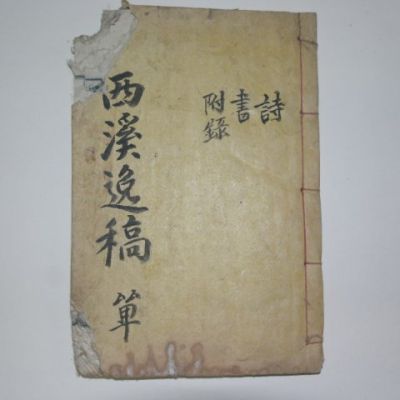 西溪逸稿 単
詩
書
附錄